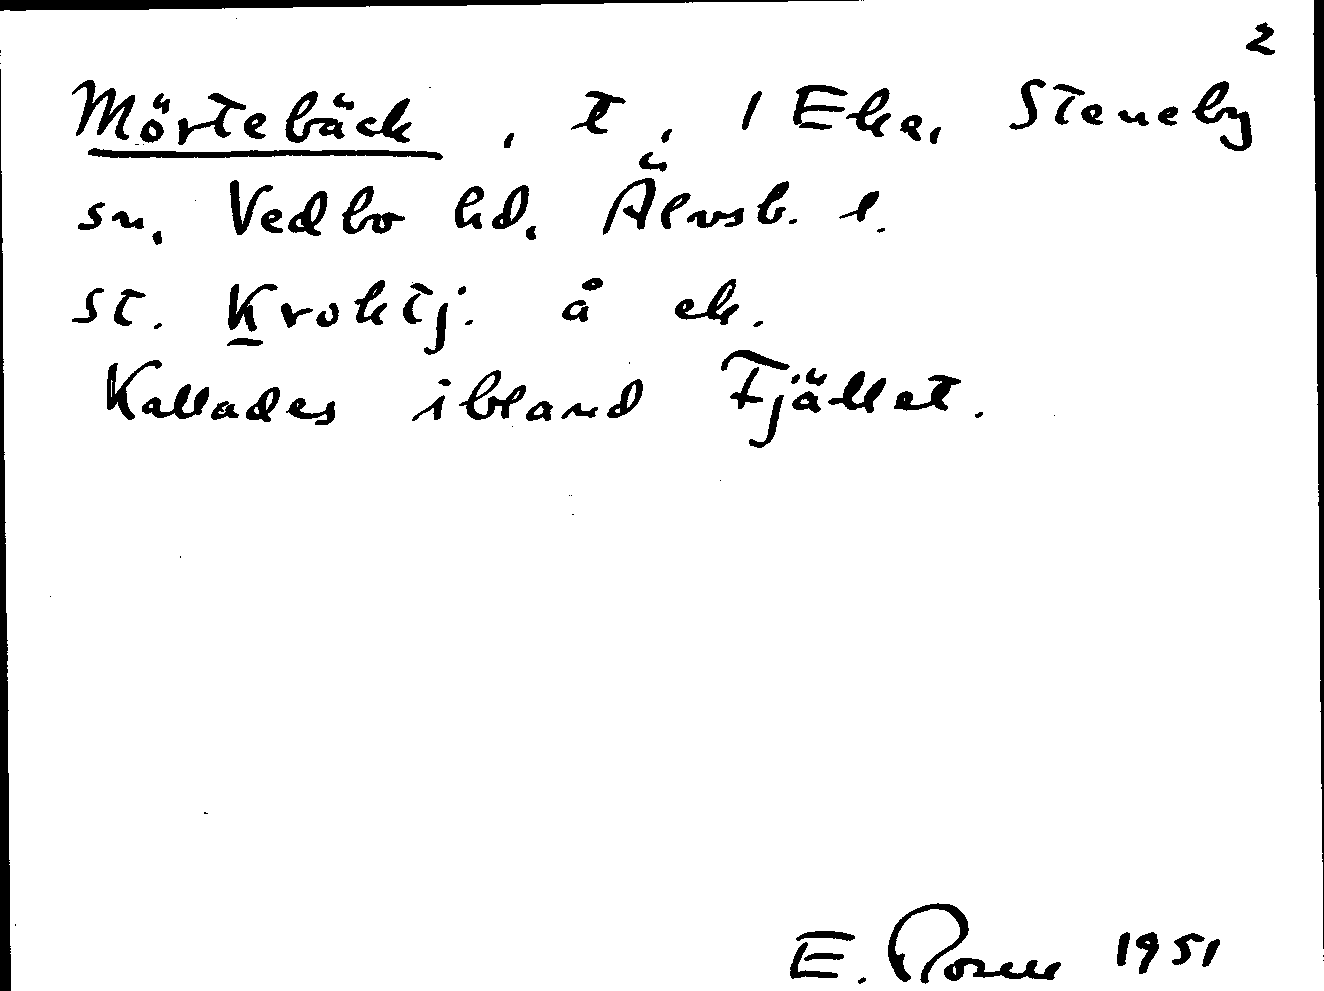 2
Mörtebäck, t, 1 Eka, Steneby
sn, Vedbo hd, Älvsb. l.
St. Kroktj. å ek.
Kallades ibland Fjället.
E. Rosen 1951